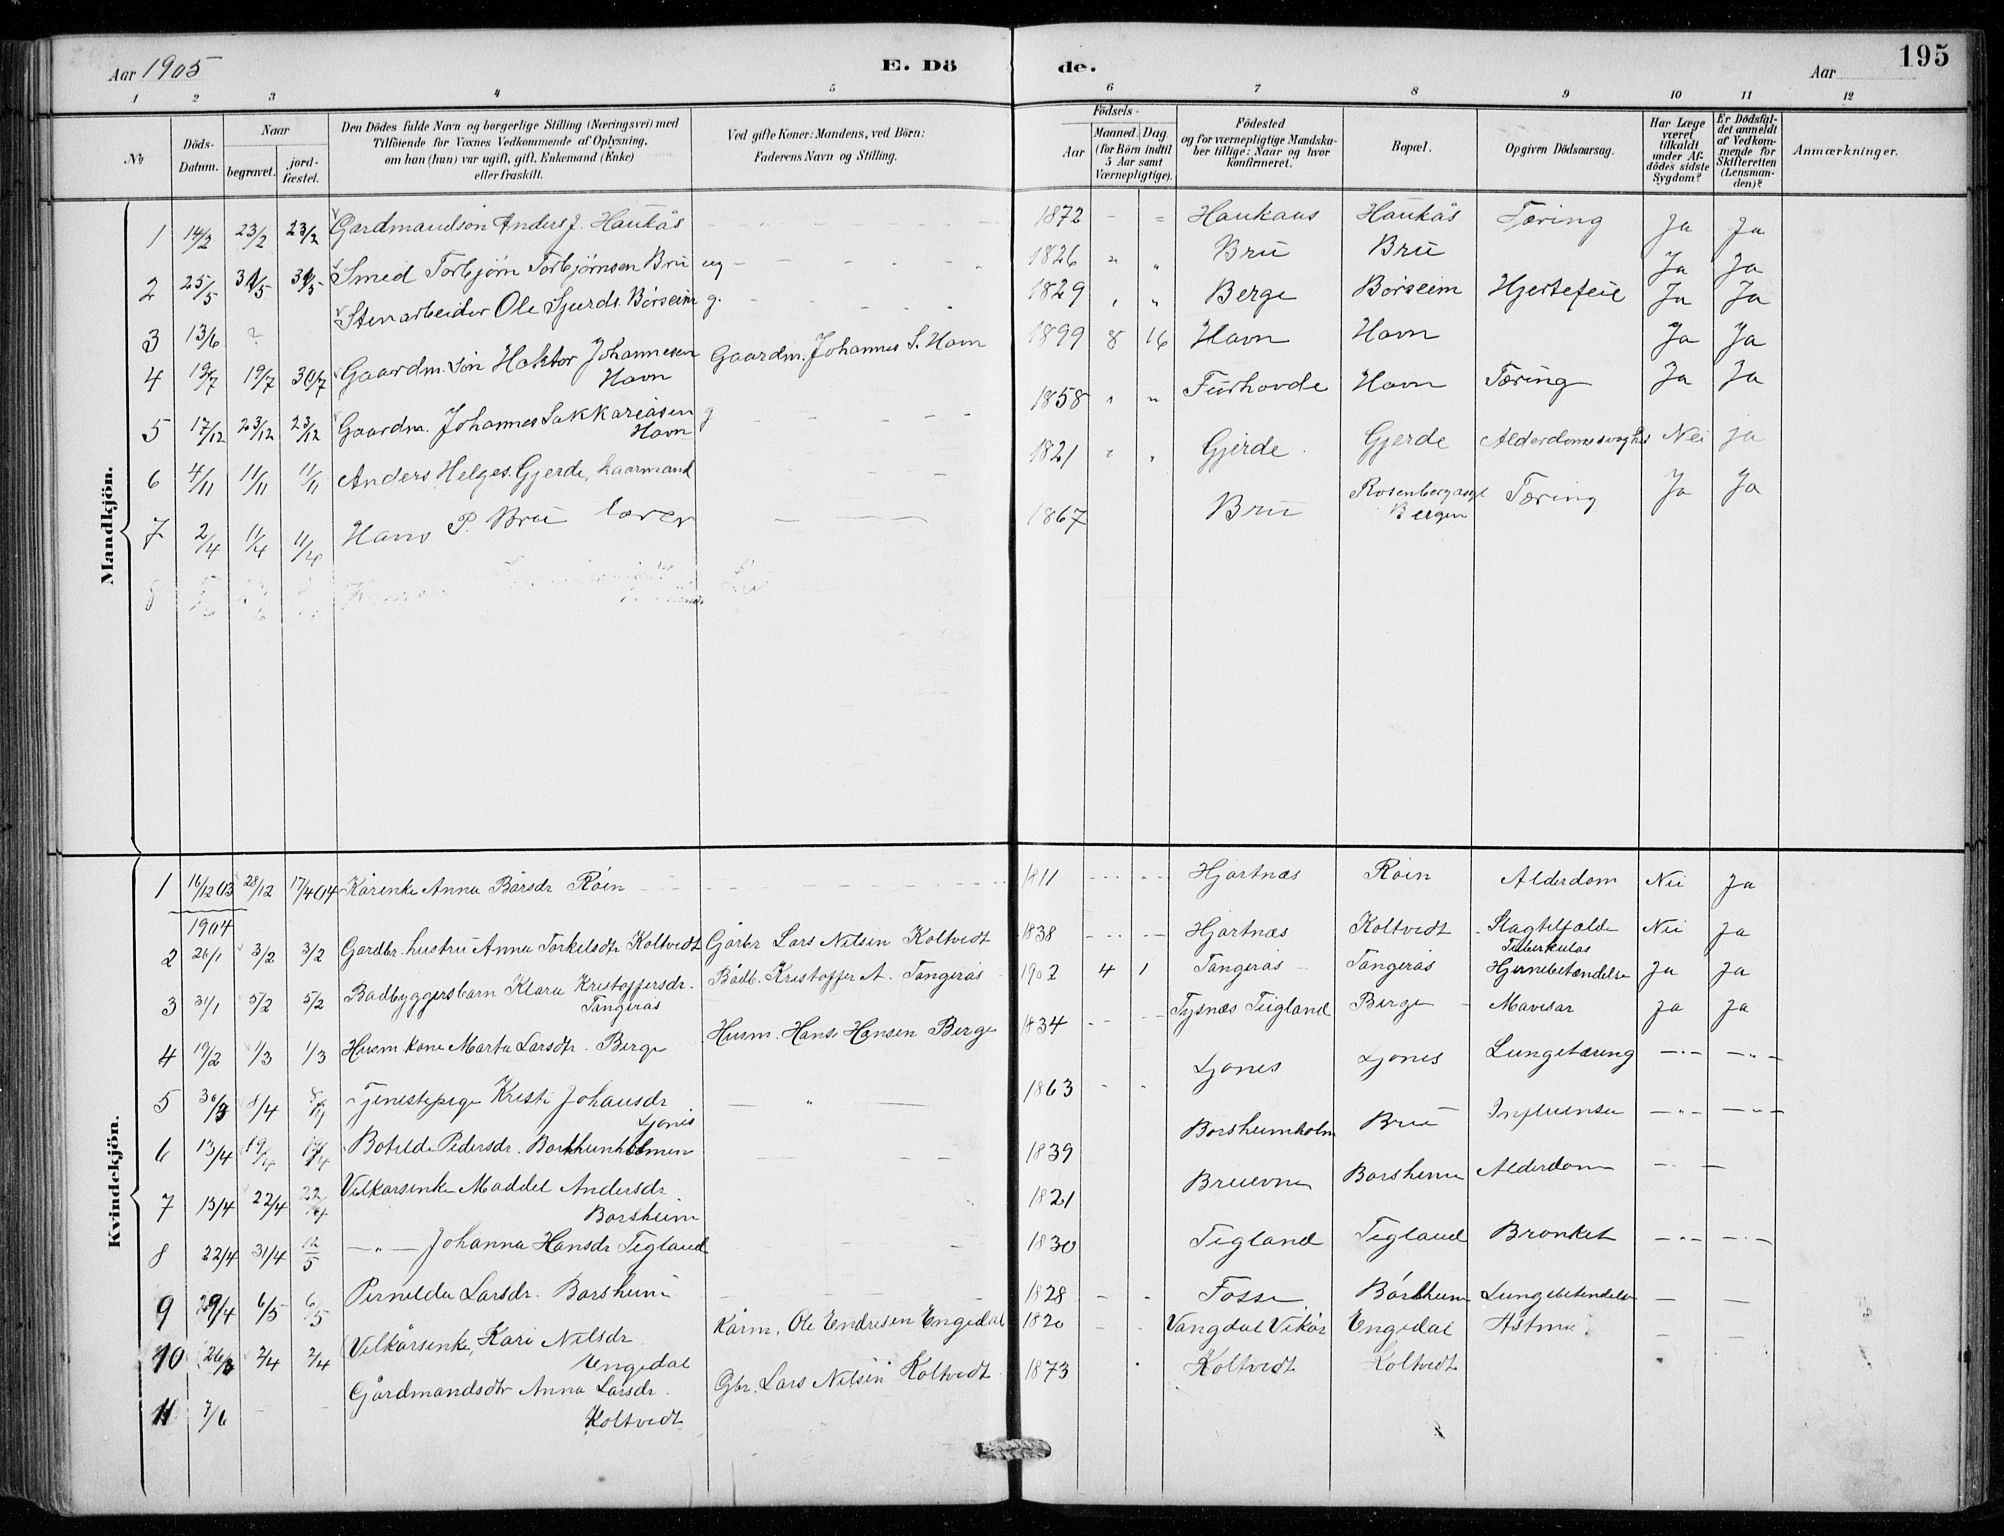 Aar 1905
E. Dö
de.
Aar
195
1 2 3 4 5 6 7 8 9 10 11 12
No
Döds-Datum.
Naar
begravet. jordfæstet.
Den Dödes fulde Navn og borgerlige Stilling (Næringsvei) med
Tilföiende for Voxnes Vedkommende af Oplysning,
om han (hun) var ugift, gift, Enkemand (Enke)
eller fraskilt.
Ved gifte Koner: Mandens, ved Börn:
Faderens Navn og Stilling.
Födsels-
Aar
Maaned. Dag.
(for Börn indtil
5 Aar samt
Værnepligtige).
Födested
og for værnepligtige Mandskaber tillige: Naar og hvor
konfirmeret.
Bopæl.
Opgiven Dödsaarsag.
Har Læge
været
tilkaldt
under Afdödes sidste
Sygdom?
Er Dödsfaldet anmeldt
af Vedkommende for
Skifteretten
(Lensmanden)?
Anmærkninger.
Mandkjön.
1 14/2 23/2 23/2 Gardmandsön Anders J. Haukås 1872 Haukaas Haukås Tæring Ja Ja
2 25/5 31/5 31/5 Smed Torbjørn Torbjørnsen Bru ug 1826 Bru Bru Ja Ja
3 13/6 ? Stenarbeider Ole Sjurds. Børseim g. 1829 Berge Børseim Hjertefeil Ja Ja
4 19/7 19/7 30/7 Gaardm. søn Hektor Johannesen Gaardm. Johannes S. Havn 1899 8 16 Havn Havn Ja Ja
Havn
5 17/12 23/12 23/12 Gaardm. Johannes Sakkariasen g 1858 Furhovde Havn Tæring Ja Ja
Havn
6 4/11 11/11 11/11 Anders Helges. Gjerde, kaarmand 1821 Gjerde Gjerde Alderdomssvaghed Nei Ja
7 2/4 11/4 11/4 Hans P. Bru lærer 1867 Bru Rosenbergasyl Tæring Ja Ja
Bergen
8
Kvindekjön.
1 16/12 03 28/12 17/4 04 Kårenke Anna Bårsdr Røen 1811 Hjartnæs Røen Alderdom Nei Ja
1904
2 26/1 3/2 3/2 Gardbr. hustru Anna Torkelsdtr Koltvedt Gårbr Lars Nilsen Koltvedt 1838 Hjartnæs Koltvedt Slagtilfælde Nei Ja
3 31/1 5/2 5/2 Badbyggersbarn Klara Kristoffersdr. Bådb. Kristoffer A. Tangerås 1902 4 1 Tangerås Tangerås Tuberkuløs Hjernebetændelse Ja Ja
Tangerås
4 19/2 1/3 1/3 Husm. kone Marta Larsdtr. Berge Husm. Hans Hansen Berge 1834 Tysnæs Teigland Berge Mavesår Ja Ja
5 30/3 8/4 8/4 Tjenestepige Kristi Johansdr 1863 Ljones Ljones Lungetæring
Ljones
6 13/4 19/4 17/4 Botilde Pedersdr. Borsheimholmen 1839 Borsheimholm Bru Influensa
7 13/4 22/4 22/4 Vilkårsenke Maddel Andersdr 1821 Bruevne Borsheim Alderdom
Borsheim
8 22/4 31/4 12/5 — " — Johanna Hansdr Tegland 1830 Tegland Tegland Bronket
9 29/4 6/5 6/5 Pernilda Larsdr. Borsheim 1828 Fosse Børsheim Lungebetændelse
10 26/3 2/4 2/4 Vilkårsenke, Kari Nilsdr Kårm. Ole Endresen Engedal 1820 Vangdal Vikør Engedal Astma
Engedal
11 7/6 Gårdmandsdtr Anna Larsdr. Gbr. Lars Nilsen Koltvedt 1873 Koltvedt Koltvedt
Koltvedt